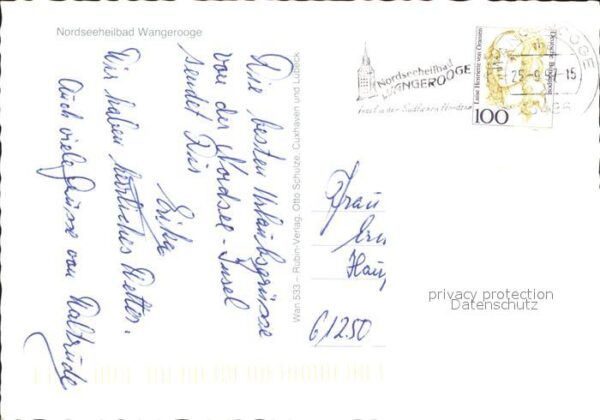 Nordseeheilbad Wangerooge
Die besten Urlaubsgrüsse
von der Nordsee-Insel
sendet Dir
Erika
Wir haben herrliches Wetter.
Auch viele Grüsse von Waltrude
Wan 533 – Rubin-Verlag, Otto Schulze, Cuxhaven und Lübeck
Nordseeheilbad
WANGEROOGE
Deutsche Bundespost
Luise Henriette von Oranien
100
Frau
61250
privacy protection
Datenschutz